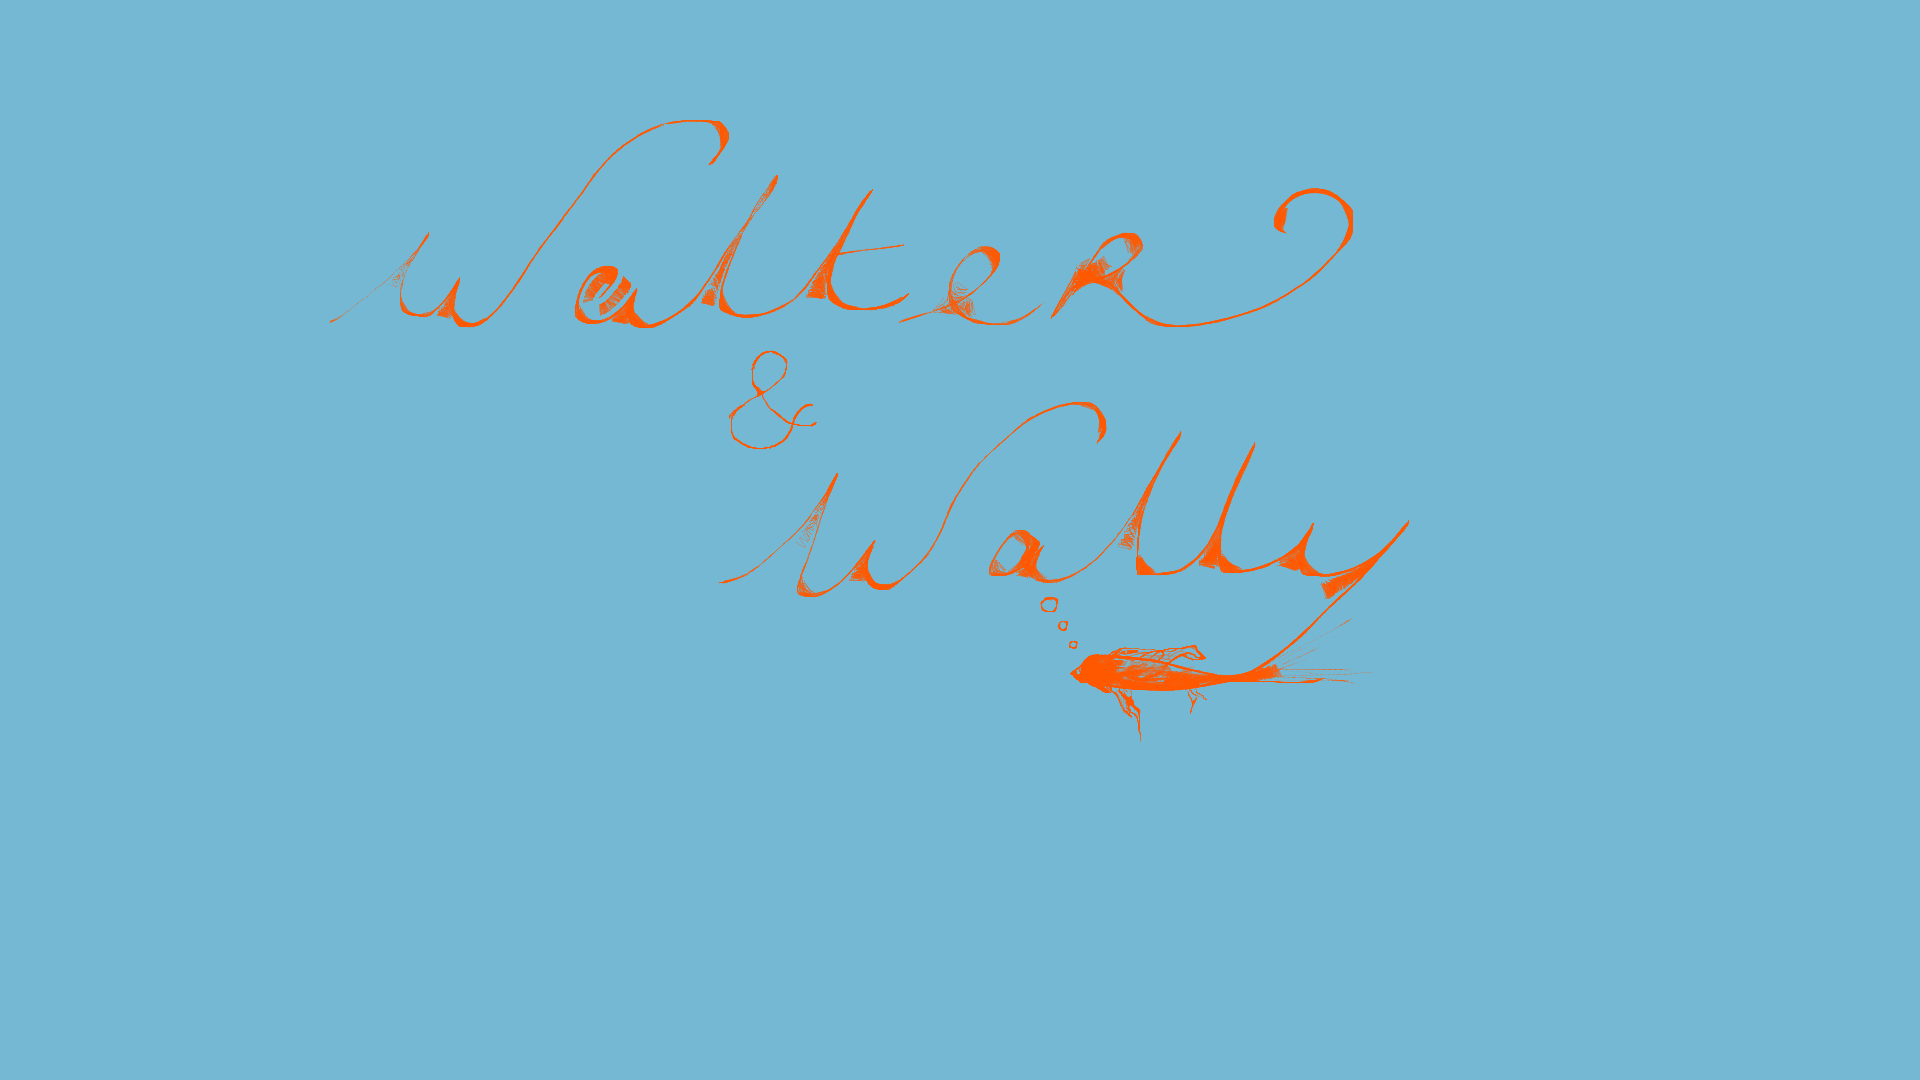 Walter
&
Wally